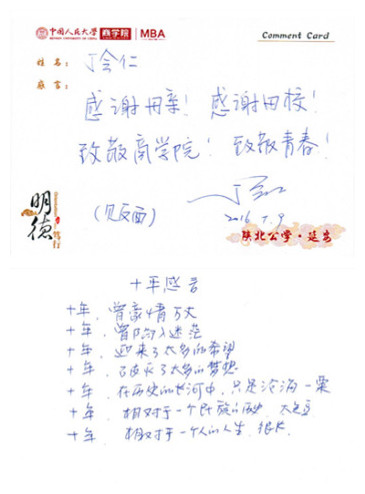 中国人民大学 商学院 MBA
Comment Card
姓名： 丁会仁
感言：
感谢母亲！ 感谢母校！
致敬商学院！ 致敬青春！
（见反面）
2016.7.9
明德
陕北公学·延安
十年感言
十年，曾豪情万丈
十年，曾陷入迷茫
十年，迎来了太多的希望
十年，了太多的梦想
十年，在历史的长河中，只是沧海一粟
十年，相对于一个民族的，太
十年，相对于一个人的人生，很长